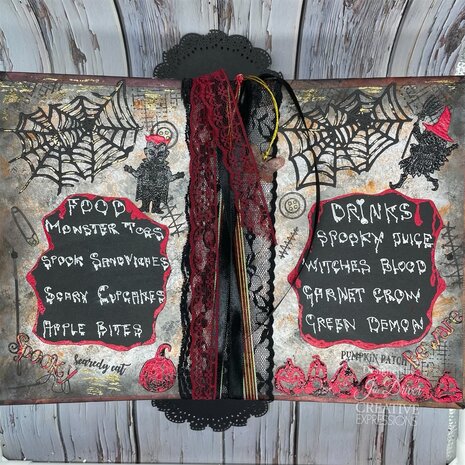 FOOD
MONSTER TOES
SPOOK SANDWICHES
SCARY CUPCAKES
APPLE BITES
Spooky
scaredy cat
DRINKS
SPOOKY JUICE
WITCHES BLOOD
GARNET CROW
GREEN DEMON
PUMPKIN PATCH
Beware
CREATIVE
EXPRESSIONS